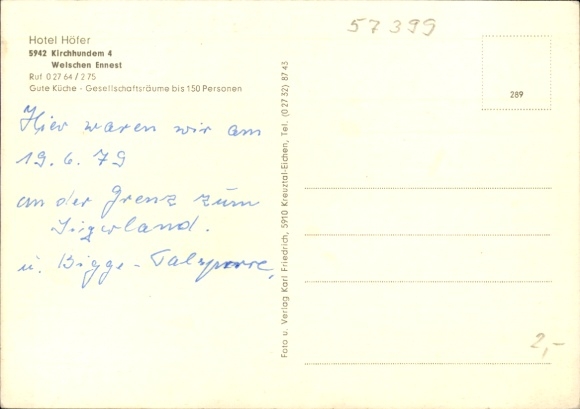 Hotel Höfer
5942 Kirchhundem 4
Welschen Ennest
Ruf 0 27 64 / 2 75
Gute Küche - Gesellschaftsräume bis 150 Personen
57399
289
Hier waren wir am
19.6.79
an der Grenz zum
Sigerland.
u. Bigge-Talsperre,
Foto u. Verlag Karl Friedrich, 5910 Kreuztal-Eichen, Tel. (0 27 32) 87 43
2,-